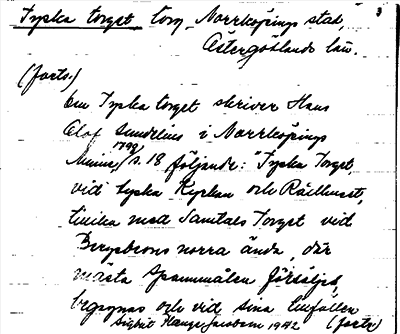 Tyska torget torg, Norrköpings stad, 3
Östergötlands län.
(forts.)
Om Tyska torget skriver Hans
Olof Sundelius i Norrköpings
Minne, 1798, s. 18 följande: "Tyska Torget,
vid tyska Kyrkan och Rådhuset,
tillika med Samtals Torget vid
Bergsbrons norra ända, där
mästa Spannmålen försäljes,
begagnas och vid sina tillfällen
1942 (forts)